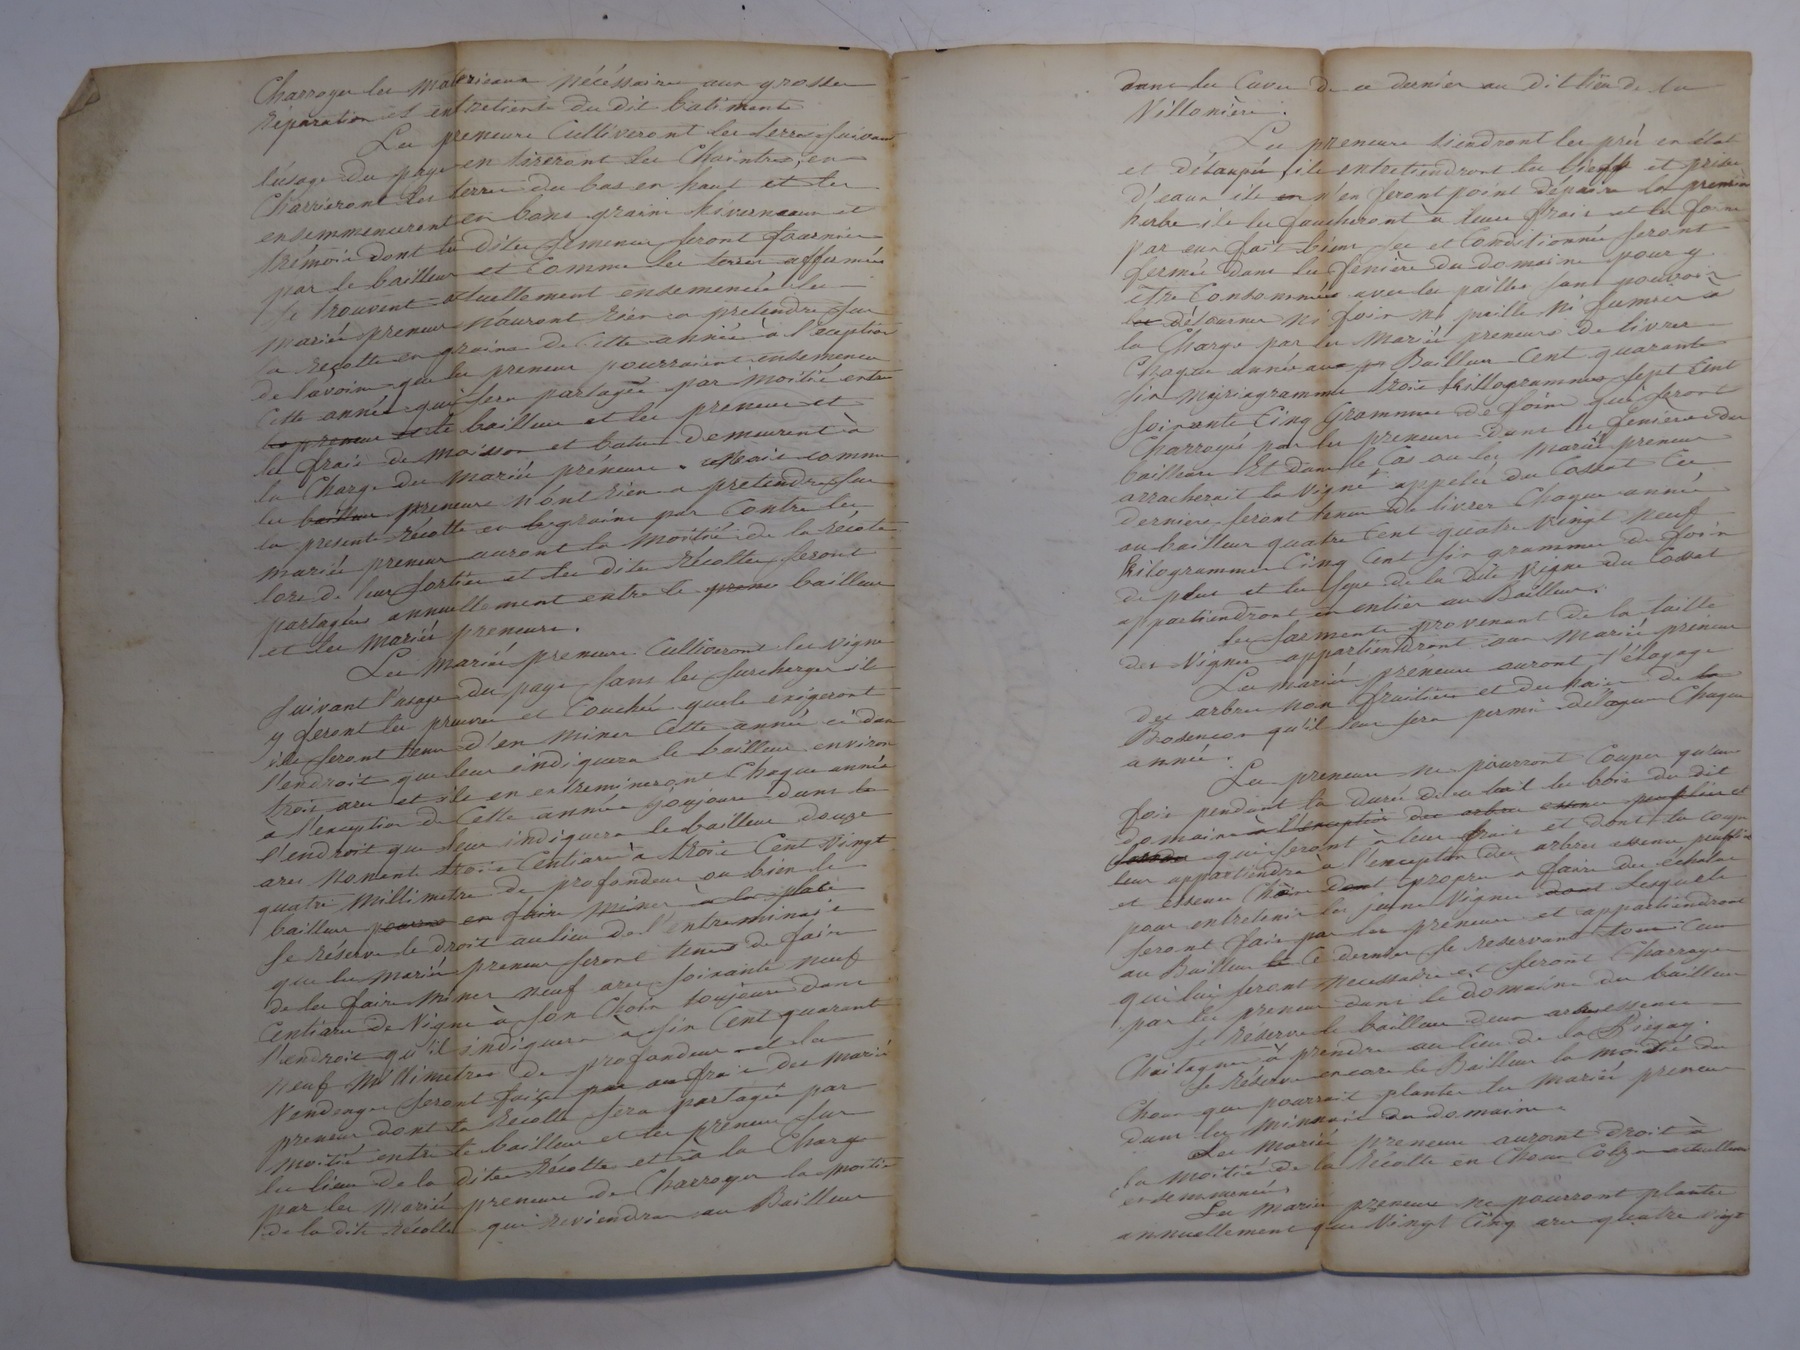 Charroyer les materiaux nécéssaire aux grosses
réparation et entretiente du dit batiments
Les preneurs Cultiveront les terres suivant
l'usage du pays en tireront les Chaintres, en
Charrieront les terres du bas en haut et les
ensemmenceront en bons grains hivernaux et
trémois dont les dites semences seront fournies
par le bailleur et Comme les terres affermées
se trouvent actuellement ensemencées les
mariés preneurs n'auront rien a pretendre sur
la recolte en grains de Cette année à l'eception
de l'avoine que les preneurs pourraient ensemencer
Cette année qui sera partagée par moitié entre
les preneurs et le bailleur et les preneurs et
les frais de moisson et bature demeurent à
la Charge des mariés prèneurs. Mais comme
les bailleur preneurs n'ont rien a pretendre sur
la present récolte en grains par Contre les
mariés preneurs auront la moitié de la récolte
lors de leur sortie et les dites récoltes seront
partagées annuellement entre le bailleur
et les mariés preneurs.
Les mariés preneurs Cultiveront les vignes
suivant l'usage du pays sans les surcharger ils
y feront les preuves et Couchées quels exigeront
ils seront tenus d'en miner Cette année ci dans
l'endroit que leur indiquera le bailleur environ
trois ares et ils en entremineront Chaque année
a l'exception de Cette année toujours dans
l'endroit que leur indiquera le bailleur douze
ares nonente trois Centiares à trois Cent vingt
quatre millimetres de profondeur ou bien le
bailleur pourra en faire miner à la place
se réserve le droit aulieu de l'entreminage
que les mariés preneurs seront tenus de faire
de les faire miner neuf ares soixante neuf
Centiares de vigne à son Choix toujours dans
l'endroit qu'il indiquera à six Cent quarante
neuf Millimetres de profondeur et les
Vendanges seront faites par aux frais des mariés
preneurs dont la récolte sera partagée par
moitié entre le bailleur et les preneurs sur
les lieux de la dites récolte et à la Charge
par les mariés preneurs de Charroyer la moitié
de la dite récolte qui reviendra au Bailleur
dans les Caves de ce dernier au dit lieu de la
Villonière.
Les preneurs tiendront les prés en état
et détaupés ils entretiendront les biefs et prises
d'eaux ils n'en feront point dépaitre les premières
herbes ils les faucheront à leurs frais et les foins
par eux fait bien sec et Conditionnés seront
fermés dans les fenières du domaine pour y
être Consommées avec les pailles sans pouvoir
détourner ni foin ni paille ni fumier à
la Charge par les Mariés preneurs de livrer
Chaque année au Bailleur Cent quarante
six myriagrammes trois killogrammes sept Cent
soixante Cinq Grammes de foins qui seront
Charroyés par les preneurs dans les fenières du
bailleur Et dans le Cas ou les mariés preneurs
arracherait la vigne appelée du Cossat Ces
derniers seront tenus de livrer Chaque année
au bailleur quatre Cent quatre vingt neuf
kilogrammes Cinq Cent six grammes de foin
de plus et les seps de la dite vigne du Cossat
appartiendront en entier au Bailleur.
les sarments provenant de la taille
des vignes appartiendront aux mariés preneurs
Les mariés preneurs auront l'élagage
des arbres non fruitiers et des haies de la
Bosençon qu'il leur sera permis délaguer Chaque
année.
Les preneurs ne pourront Couper qu'une
fois pendant la durée de ce bail les bois du dit
domaine à l'exception des arbres essence peuplier et
qui seront à leur frais et dont la coupe
leur appartiendra à l'exception des arbres essence peupliers
et essence Chêne propre a faire des echalas
pour entretenir les jeune vignes dont lesquels
seront fait par les preneurs et appartiendront
au Bailleur Ce dernier se reservant tous Ceux
qui lui seront necessaire et seront Charroyer
par les preneurs dans le domaine du bailleur
Se Réserve le bailleur deux arbres essence
Chaitagner à prendre au lieu de la
Se Réserve encore le Bailleur la moitié des
Choux que pourrait planter les mariés preneurs
dans les minnais du domaine.
Les Mariés preneurs auront droit à
la moitié de la Récolte en Choux Colza actuellement
ensemmencés
Les mariés preneurs ne pourront planter
annuellement que vingt Cinq ares quatre vingt